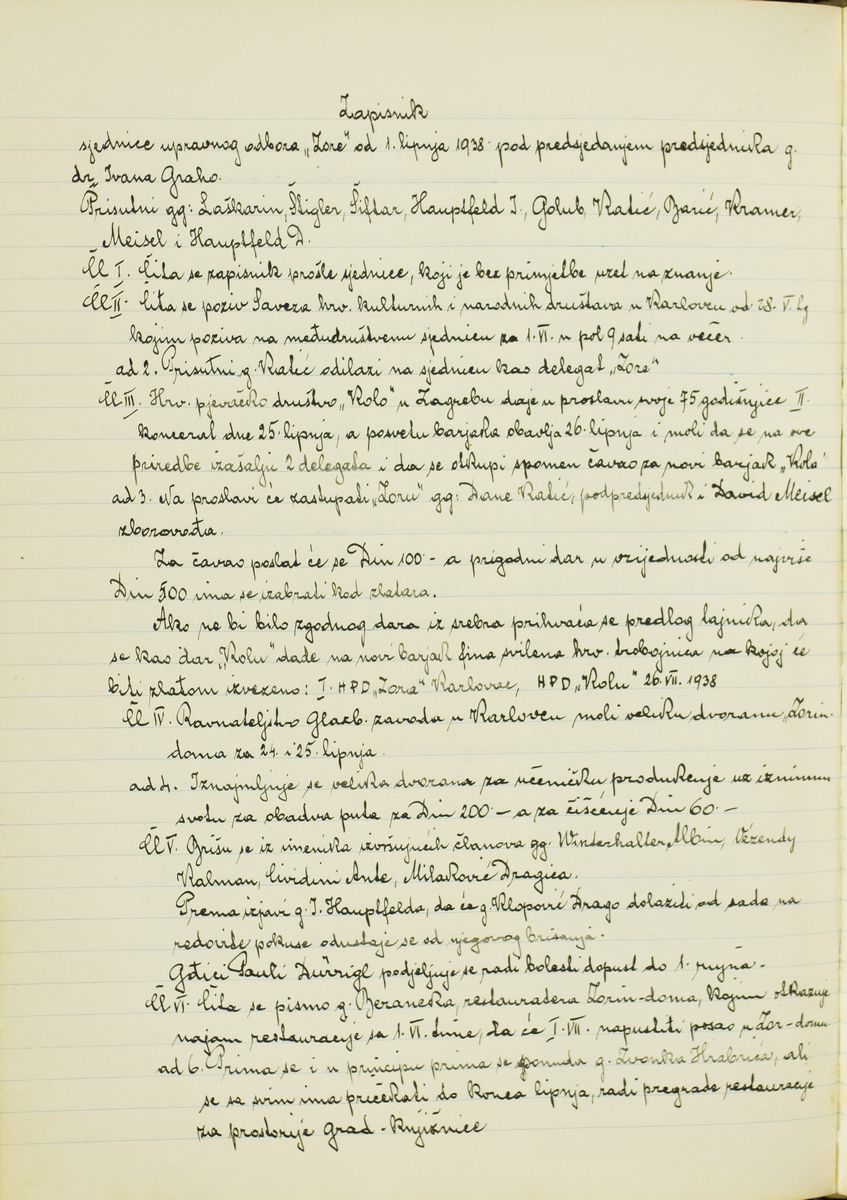 Zapisnik
sjednice upravnog odbora „Zore" od 1. lipnja 1938. pod predsjedanjem predsjednika g.
dr. Ivana Graho.
Prisutni gg: Laškarin, Štigler, Šiftar, Hauptfeld I., Golub, Katić, Barić, Kramer,
Meisel i Hauptfeld D.
Čl I. Čita se zapisnik prošle sjednice, koji je bez primjetbe uzet na znanje.
Čl II. Čita se poziv Saveza hrv. kulturnih i narodnih društava u Karlovcu od 28. V. tg
kojim poziva na međudruštvenu sjednicu za 1. VI. u pol 9 sati na večer.
ad 2. Prisutni g. Katić odilazi na sjednicu kao delegat „Zore"
Čl III. Hrv. pjevačko društvo „Kolo" u Zagrebu daje u proslavu svoje 75 godišnjice II.
koncerat dne 25. lipnja, a posvetu barjaka obavlja 26. lipnja i moli da se na ove
priredbe izašalju 2 delegata i da se otkupi spomen čavao za novi barjak „Kola"
ad 3. Na proslavi će zastupati „Zoru" gg: Dane Katić, podpredsjednik i David Meisel
zborovođa.
Za čavao poslat će se Din 100.- a prigodni dar u vrijednosti od najviše
Din 500 ima se izabrati kod zlatara.
Ako ne bi bilo zgodnog dara iz srebra prihvaća se predlog tajnika, da
se kao dar „Kolu" dade na novi barjak fina svilena hrv. trobojnica na kojoj će
biti zlatom izvezeno: I. HPD „Zora" Karlovac, HPD „Kolu" 26. VII. 1938
Čl IV. Ravnateljstvo Glazb. zavoda u Karlovcu moli veliku dvoranu „Zorin-
doma za 24. i 25. lipnja.
ad 4. Iznajmljuje se velika dvorana za učeničku produkciju uz iznimnu
svotu za obadva puta za Din 200.- a za čišćenje Din 60.-
Čl V. Brišu se iz imenika izvršujućih članova gg. Winterhalter Albin, Vézendy
Kalman, Cividini Ante, Milaković Dragica.
Prema izjavi g. I. Hauptfelda, da će g. Klopović Drago dolaziti od sada na
redovite pokuse odustaje se od njegovog brisanja.
Gđici Pauli Dürrigl podjeljuje se radi bolesti dopust do 1. rujna.-
Čl VI. Čita se pismo g. Beraneka, restauratera Zorin-doma, kojim otkazuje
najam restauracije sa 1. VI. time, da će I. VII. napustiti posao u Zor-domu
ad 6. Prima se i u principu prima se ponuda g. Zvonka Hrabrića, ali
se sa svim ima pričekati do konca lipnja, radi pregrade restauracije
za prostorije grad-knjižnice